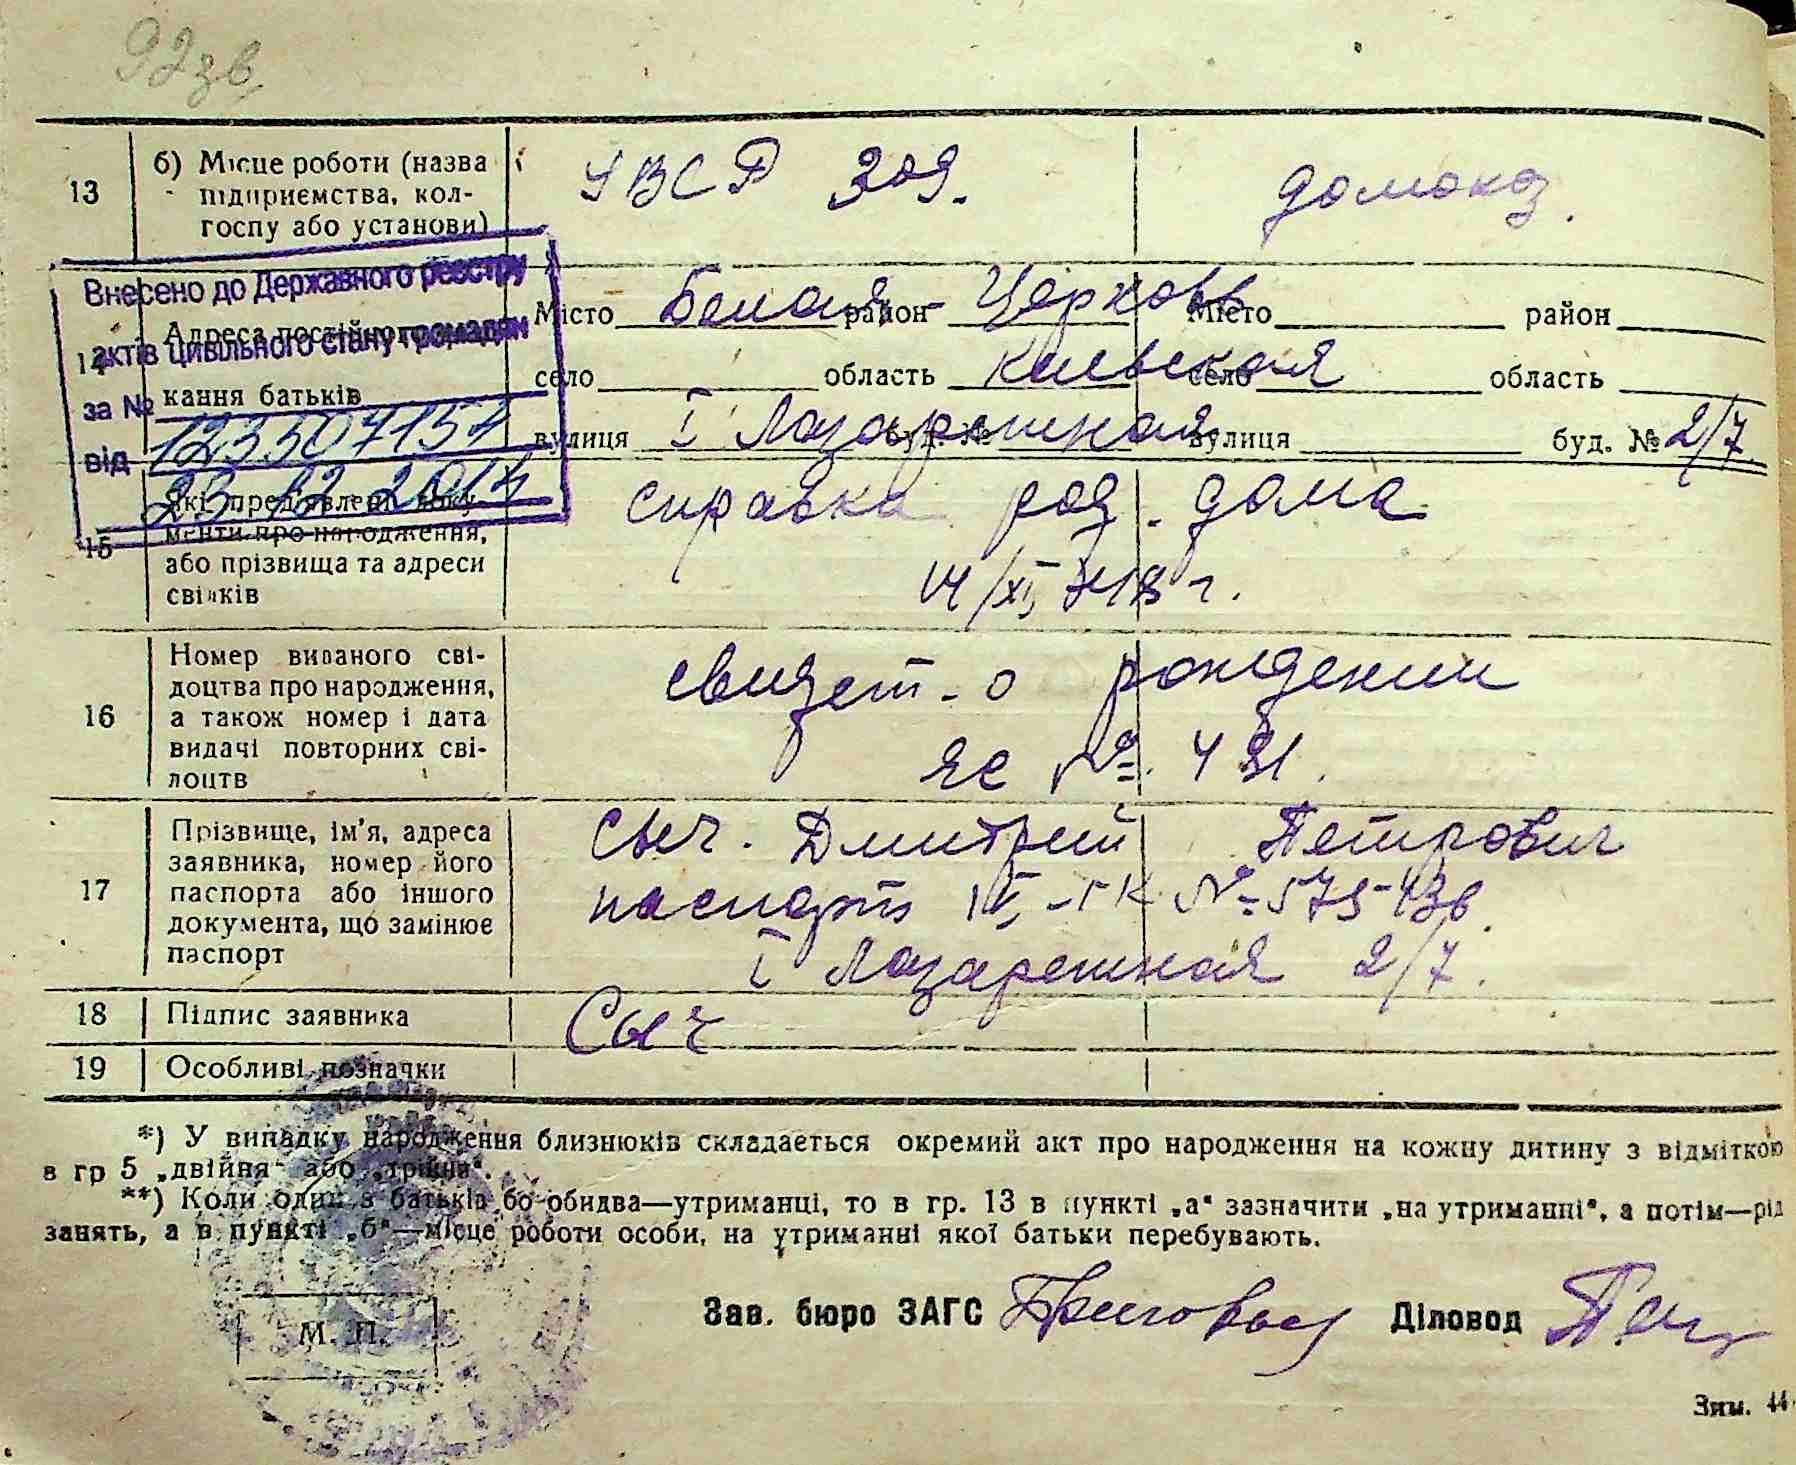 92зв.
13
б) Місце роботи (назва
підприємства, кол-
госпу або установи)
УВСР 309.
домохоз.
Внесено до Державного реєстру
актів цивільного стану громадян
за №
від 23.12.2014
14
Адреса постійного
кання батьків
Місто Белая район Церковь Місто район
село область Киевская село область
вулиця І Лазаретная буд. № вулиця буд. № 2/7
15
Які пред'явлені доку-
менти про народження,
або прізвища та адреси
свідків
справка род. дома
16
Номер виданого сві-
доцтва про народження,
а також номер і дата
видачі повторних сві-
доцтв
свидет-о рождении
ЯС №
17
Прізвище, ім'я, адреса
заявника, номер його
паспорта або іншого
документа, що замінює
паспорт
Сыч. Дмитрий Петрович
паспорт №
І Лазаретная 2/7.
18
Підпис заявника
Сыч
19
Особливі позначки
*) У випадку народження близнюків складається окремий акт про народження на кожну дитину з відміткою
в гр 5 „двійня“ або „трійня“.
**) Коли один з батьків бо обидва—утриманці, то в гр. 13 в пункті „а“ зазначити „на утриманні“, а потім—рід
занять, а в пункті „б“—місце роботи особи, на утриманні якої батьки перебувають.
Зав. бюро ЗАГС Діловод
М. П.
Зим. 44